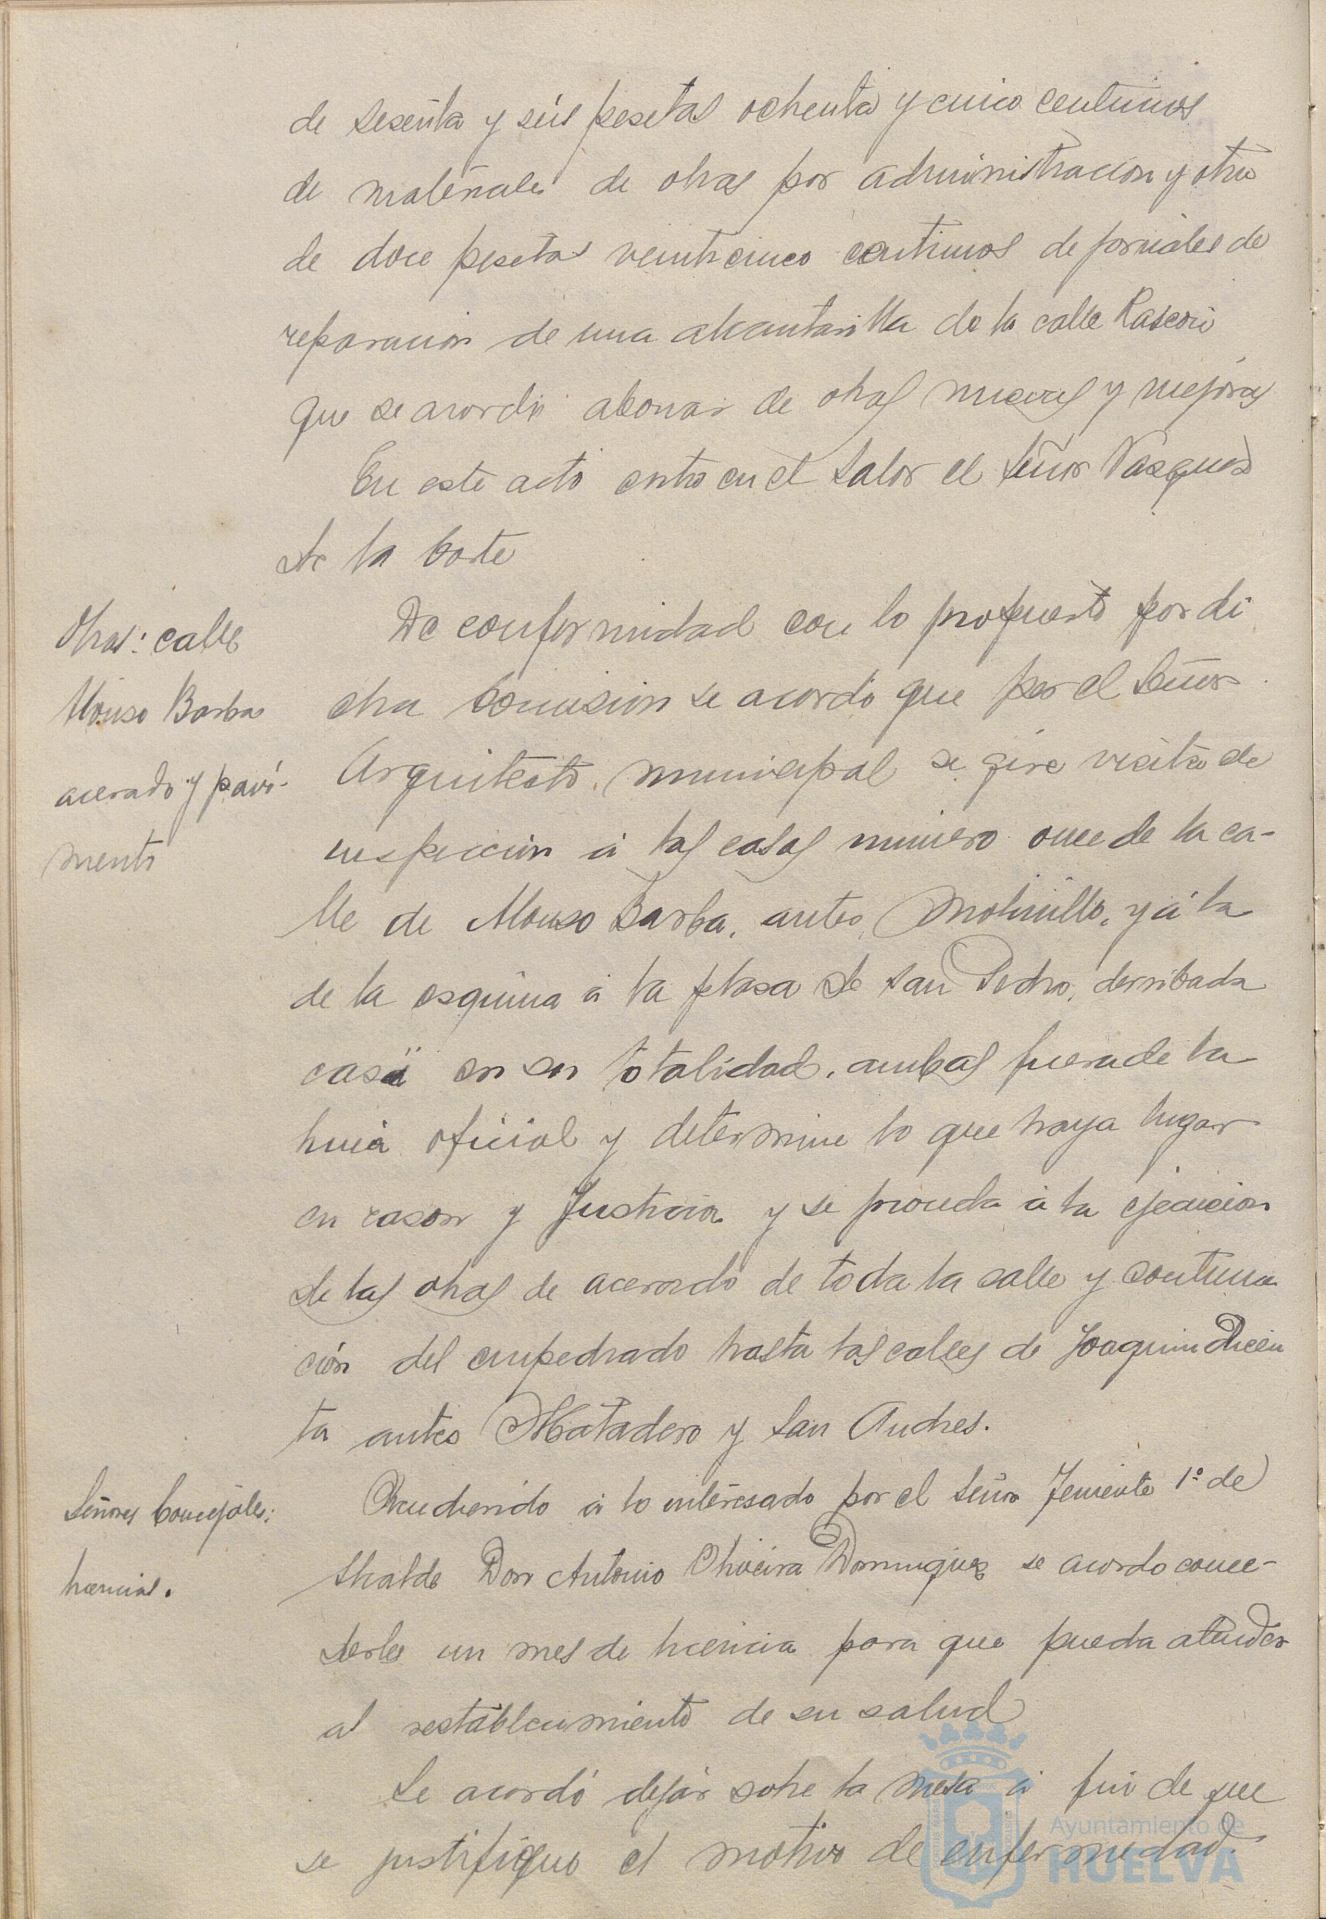 de sesenta y seis pesetas ochenta y cinco centimos
de materiales de obras por administracion y otra
de doce pesetas veinticinco centimos de jornales de
reparacion de una alcantarilla de la calle Rascon
que se acordó abonar de obras nuevas y mejoras
En este acto entro en el salon el Señor Vasquez
de la Corte
Obras: calle
Alonso Barba
acerado y pavi-
mento
De conformidad con lo propuesto por di
cha Comision se acordo que por el Señor
Arquitecto municipal se gire visita de
inspeccion á las casas numero once de la ca-
lle de Alonso Barba, antes, Molinillo, y á la
de la esquina á la plasa de San Pedro, derribada
casi en su totalidad, ambas fuera de la
linia oficial y determine lo que haya lugar
en rason y Justicia y se proceda á la ejecucion
de las obras de acerado de toda la calle y continua
ción del empedrado hasta las calles de Joaquin Dicen
ta antes Matadero y San Andres.
Señores Concejales:
licencias.
Accediendo á lo interesado por el Señor Teniente 1º de
Alcalde Don Antonio Oliveira Dominguez se acordo conce-
derle un mes de licencia para que pueda atender
al restablecimiento de su salud
Se acordó dejar sobre la mesa á fin de que
se justifique el motivo de enfermedad.
Ayuntamiento de
HUELVA